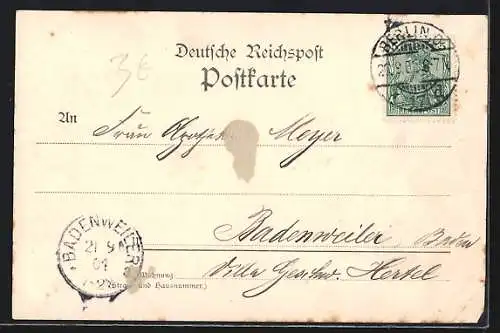 Deutsche Reichspost
Postkarte
3€
BERLIN
An
Frau Apothek. Meyer
Badenweiler, Baden
BADENWEILER
21 9
01
Wohnung
Villa Geschw. Hertel
(Straße und Hausnummer.)